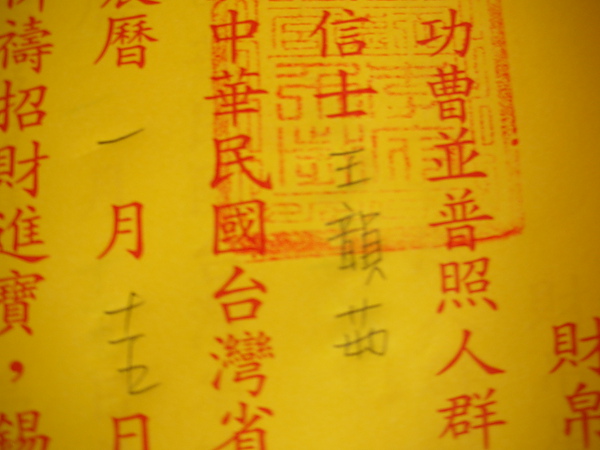 財帛
功曹並普照人群
信士王韻茹
中華民國台灣省
農曆一月十五日
祈禱招財進寶，錫